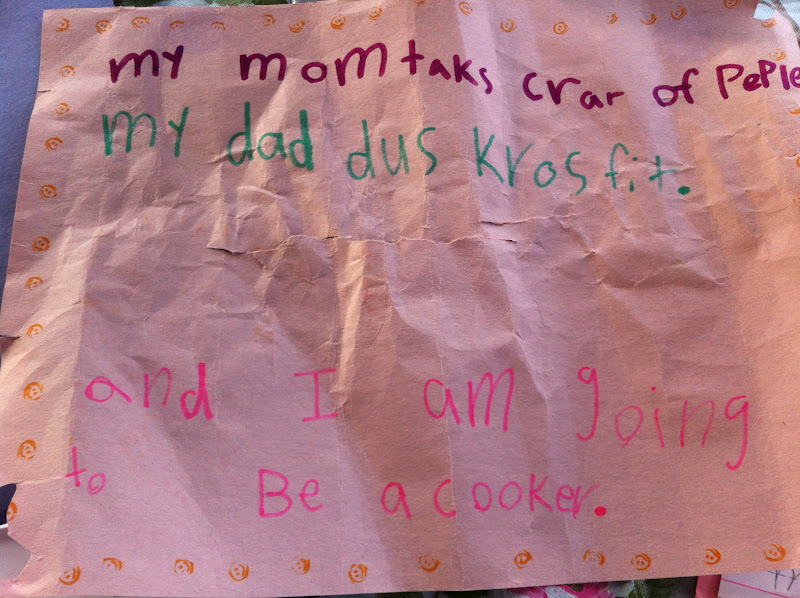 my mom taks crar of PePle
my dad dus krosfit.
and I am going
to Be a cooker.